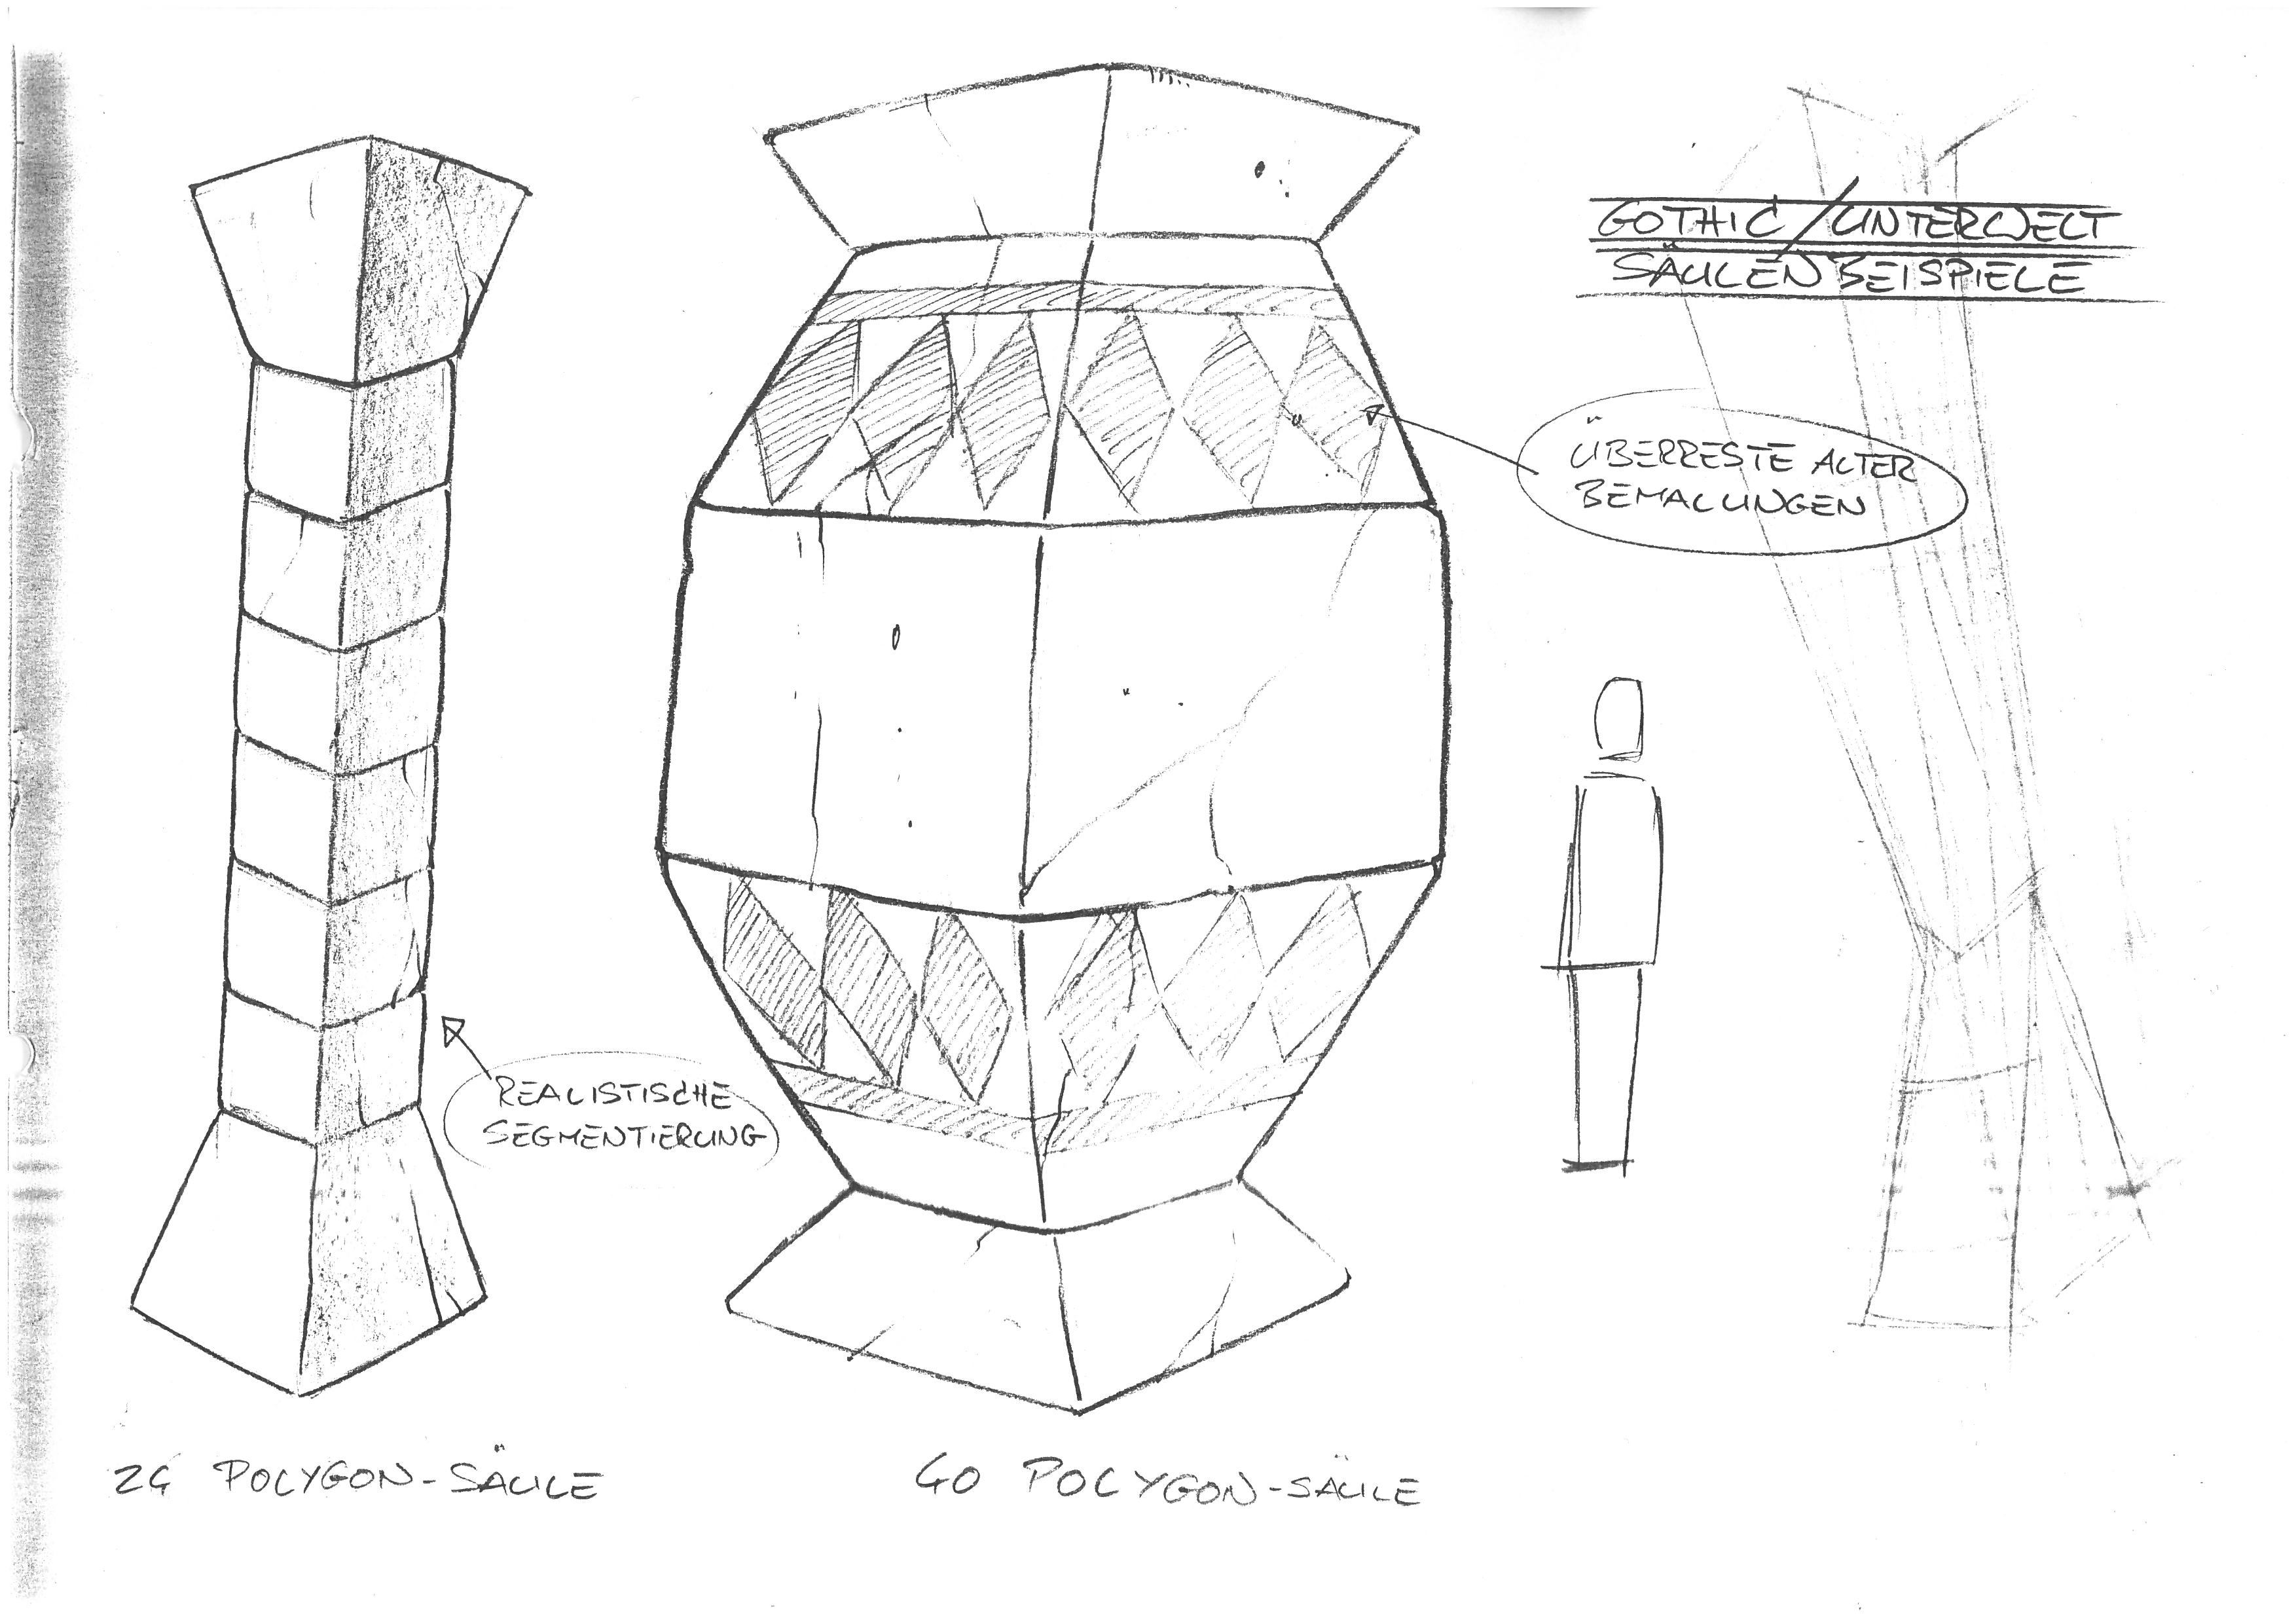 GOTHIC / UNTERWELT
SÄULENBEISPIELE
ÜBERRESTE ALTER
BEMALUNGEN
REALISTISCHE
SEGMENTIERUNG
24 POLYGON-SÄULE
40 POLYGON-SÄULE